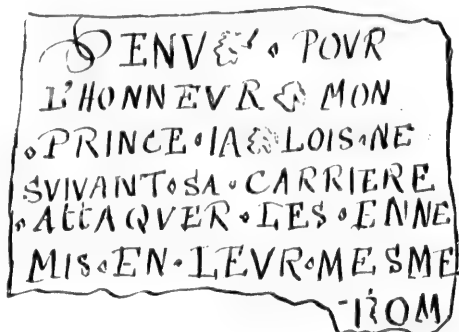 ENV POVR
L'HONNEVR MON
PRINCE•IA LOIS•NE
SVIVANT•SA•CARRIERE
•ATTAQVER•LES•ENNE
MIS•EN•LEVR•MESME